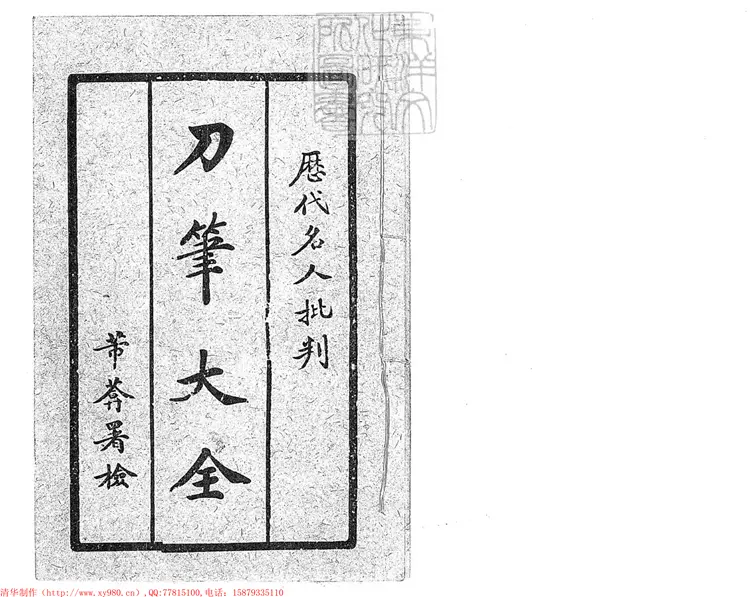 歷代名人批判
刀筆大全
芾葊署檢
清华制作（http://www.xy980.cn）,QQ:77815100,电话：15879335110